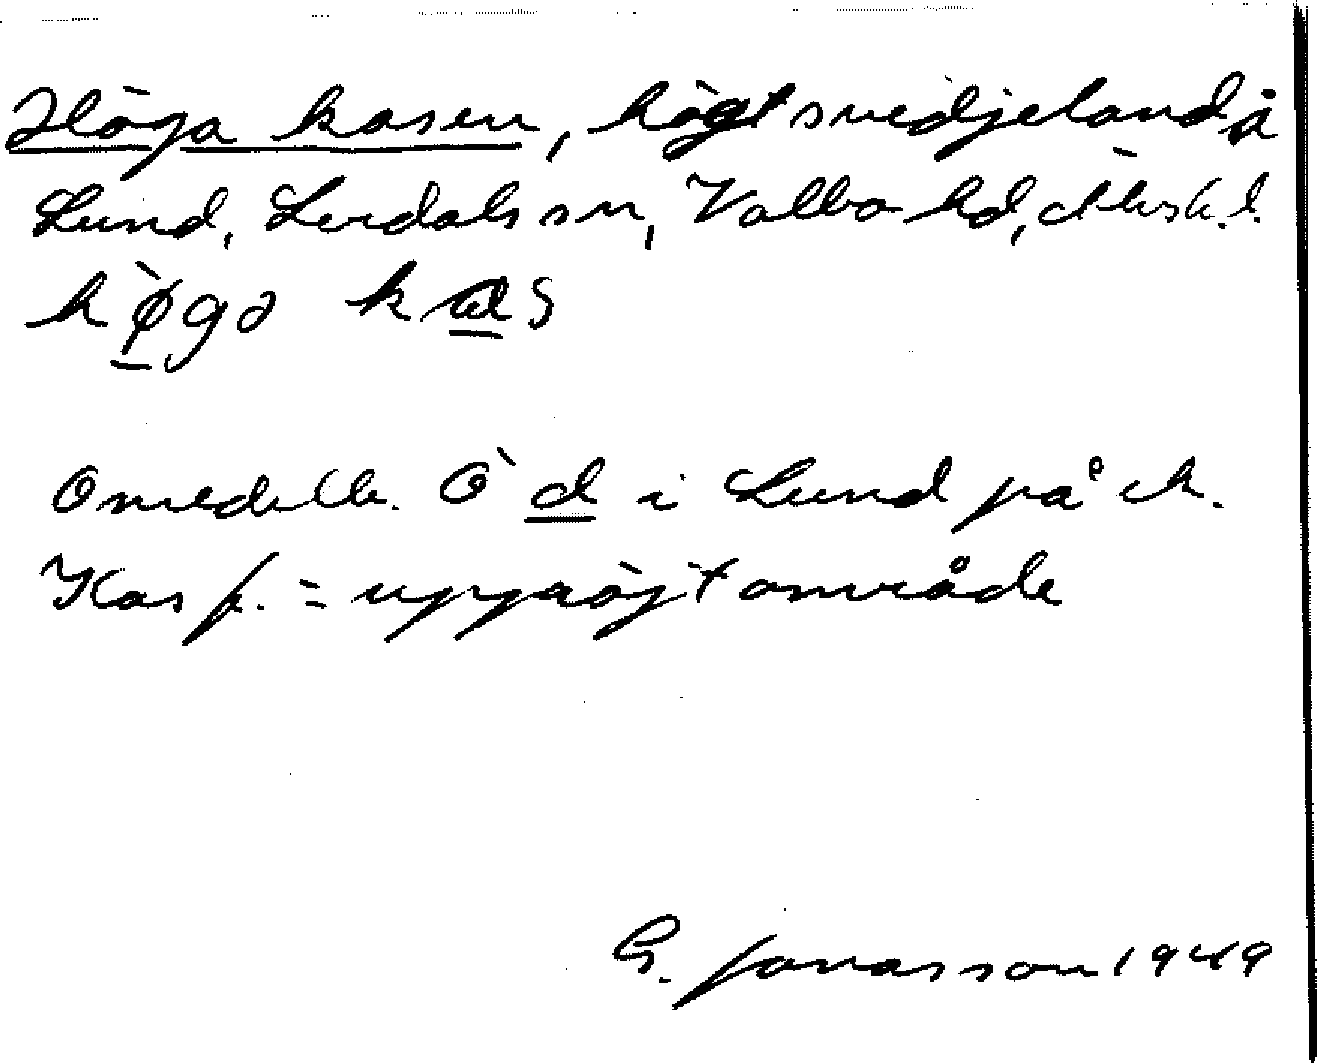 Höga kasen, högt svedjeland å
Lund, Lerdals sn, Valbo hd, Älvsb. l.
hø̀gə kas
Omedelb. Ö d i Lund på ek.
Kas f. = uppröjt område
G. Jonasson 1949